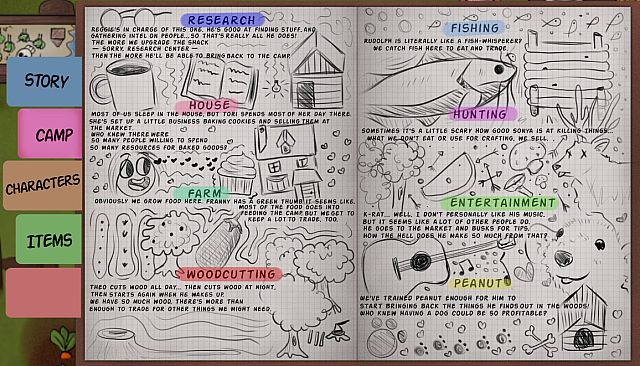 STORY
CAMP
CHARACTERS
ITEMS
RESEARCH
REGGIE'S IN CHARGE OF THIS ONE. HE'S GOOD AT FINDING STUFF, AND
GATHERING INTEL ON PEOPLE... SO THAT'S REALLY ALL HE DOES!
THE MORE WE UPGRADE THE SHACK
— SORRY, RESEARCH CENTER —
THEN THE MORE HE'LL BE ABLE TO BRING BACK TO THE CAMP.
HOUSE
MOST OF US SLEEP IN THE HOUSE, BUT TORI SPENDS MOST OF HER DAY THERE.
SHE'S SET UP A LITTLE BUSINESS BAKING COOKIES AND SELLING THEM AT
THE MARKET.
WHO KNEW THERE WERE
SO MANY PEOPLE WILLING TO SPEND
SO MANY RESOURCES FOR BAKED GOODS?
FARM
OBVIOUSLY WE GROW FOOD HERE. FRANNY HAS A GREEN THUMB IT SEEMS LIKE.
MOST OF THE FOOD GOES INTO
FEEDING THE CAMP, BUT WE GET TO
KEEP A LOT TO TRADE, TOO.
WOODCUTTING
THEO CUTS WOOD ALL DAY... THEN CUTS WOOD AT NIGHT,
THEN STARTS AGAIN WHEN HE WAKES UP.
WE HAVE SO MUCH WOOD, THERE'S MORE THAN
ENOUGH TO TRADE FOR OTHER THINGS WE MIGHT NEED.
FISHING
RUDOLPH IS LITERALLY LIKE A FISH-WHISPERER?
WE CATCH FISH HERE TO EAT AND TRADE.
HUNTING
SOMETIMES IT'S A LITTLE SCARY HOW GOOD SONYA IS AT KILLING THINGS...
WHAT WE DON'T EAT OR USE FOR CRAFTING, WE SELL.
ENTERTAINMENT
K-RAT... WELL, I DON'T PERSONALLY LIKE HIS MUSIC,
BUT IT SEEMS LIKE A LOT OF OTHER PEOPLE DO.
HE GOES TO THE MARKET AND BUSKS FOR TIPS.
HOW THE HELL DOES HE MAKE SO MUCH FROM THAT?
PEANUT
WE'VE TRAINED PEANUT ENOUGH FOR HIM TO
START BRINGING BACK THE THINGS HE FINDS OUT IN THE WOODS!
WHO KNEW HAVING A DOG COULD BE SO PROFITABLE?